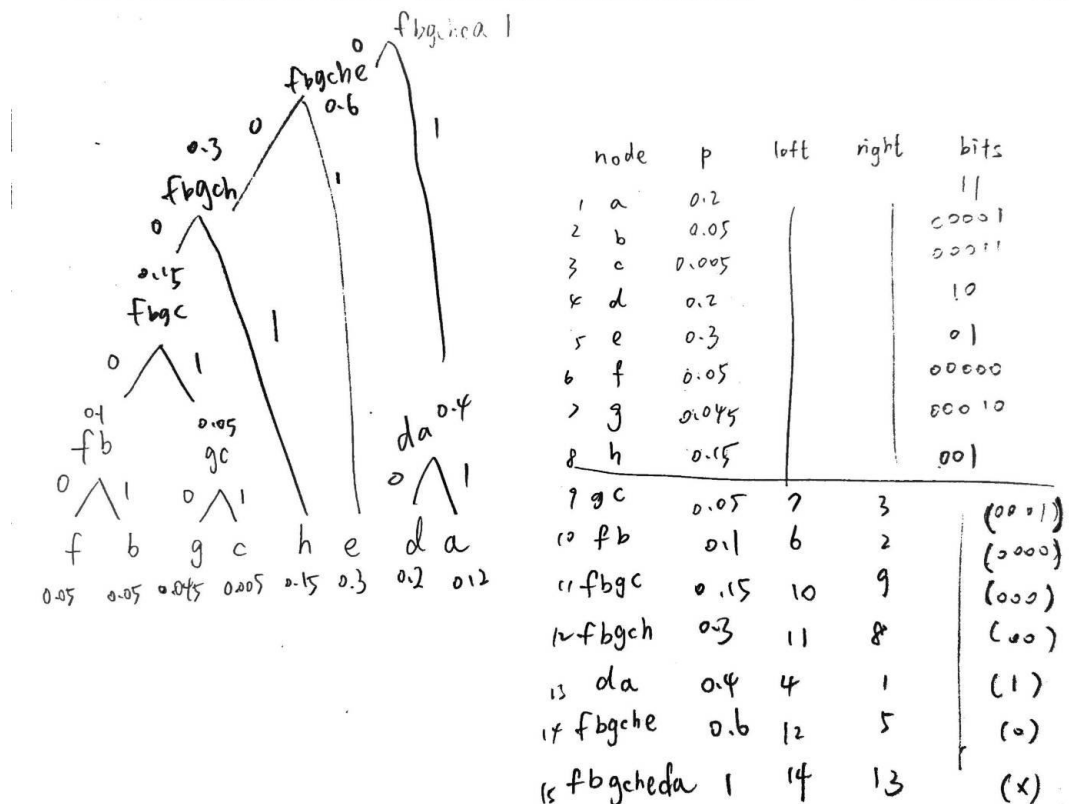 fbgcheda 1
0
fbgche
0.6
0
1
0.3
fbgch
1
0
0.15
fbgc
1
0
1
0.1
0.05
0.4
fb
gc
da
0 1 0 1 0 1
f b g c h e d a
0.05 0.05 0.045 0.005 0.15 0.3 0.2 0.2
node p left right bits
1 a 0.2 11
2 b 0.05 00001
3 c 0.005 00011
4 d 0.2 10
5 e 0.3 01
6 f 0.05 00000
7 g 0.045 00010
8 h 0.15 001
9 gc 0.05 7 3 (0001)
10 fb 0.1 6 2 (0000)
11 fbgc 0.15 10 9 (000)
12 fbgch 0.3 11 8 (00)
13 da 0.4 4 1 (1)
14 fbgche 0.6 12 5 (0)
15 fbgcheda 1 14 13 (x)